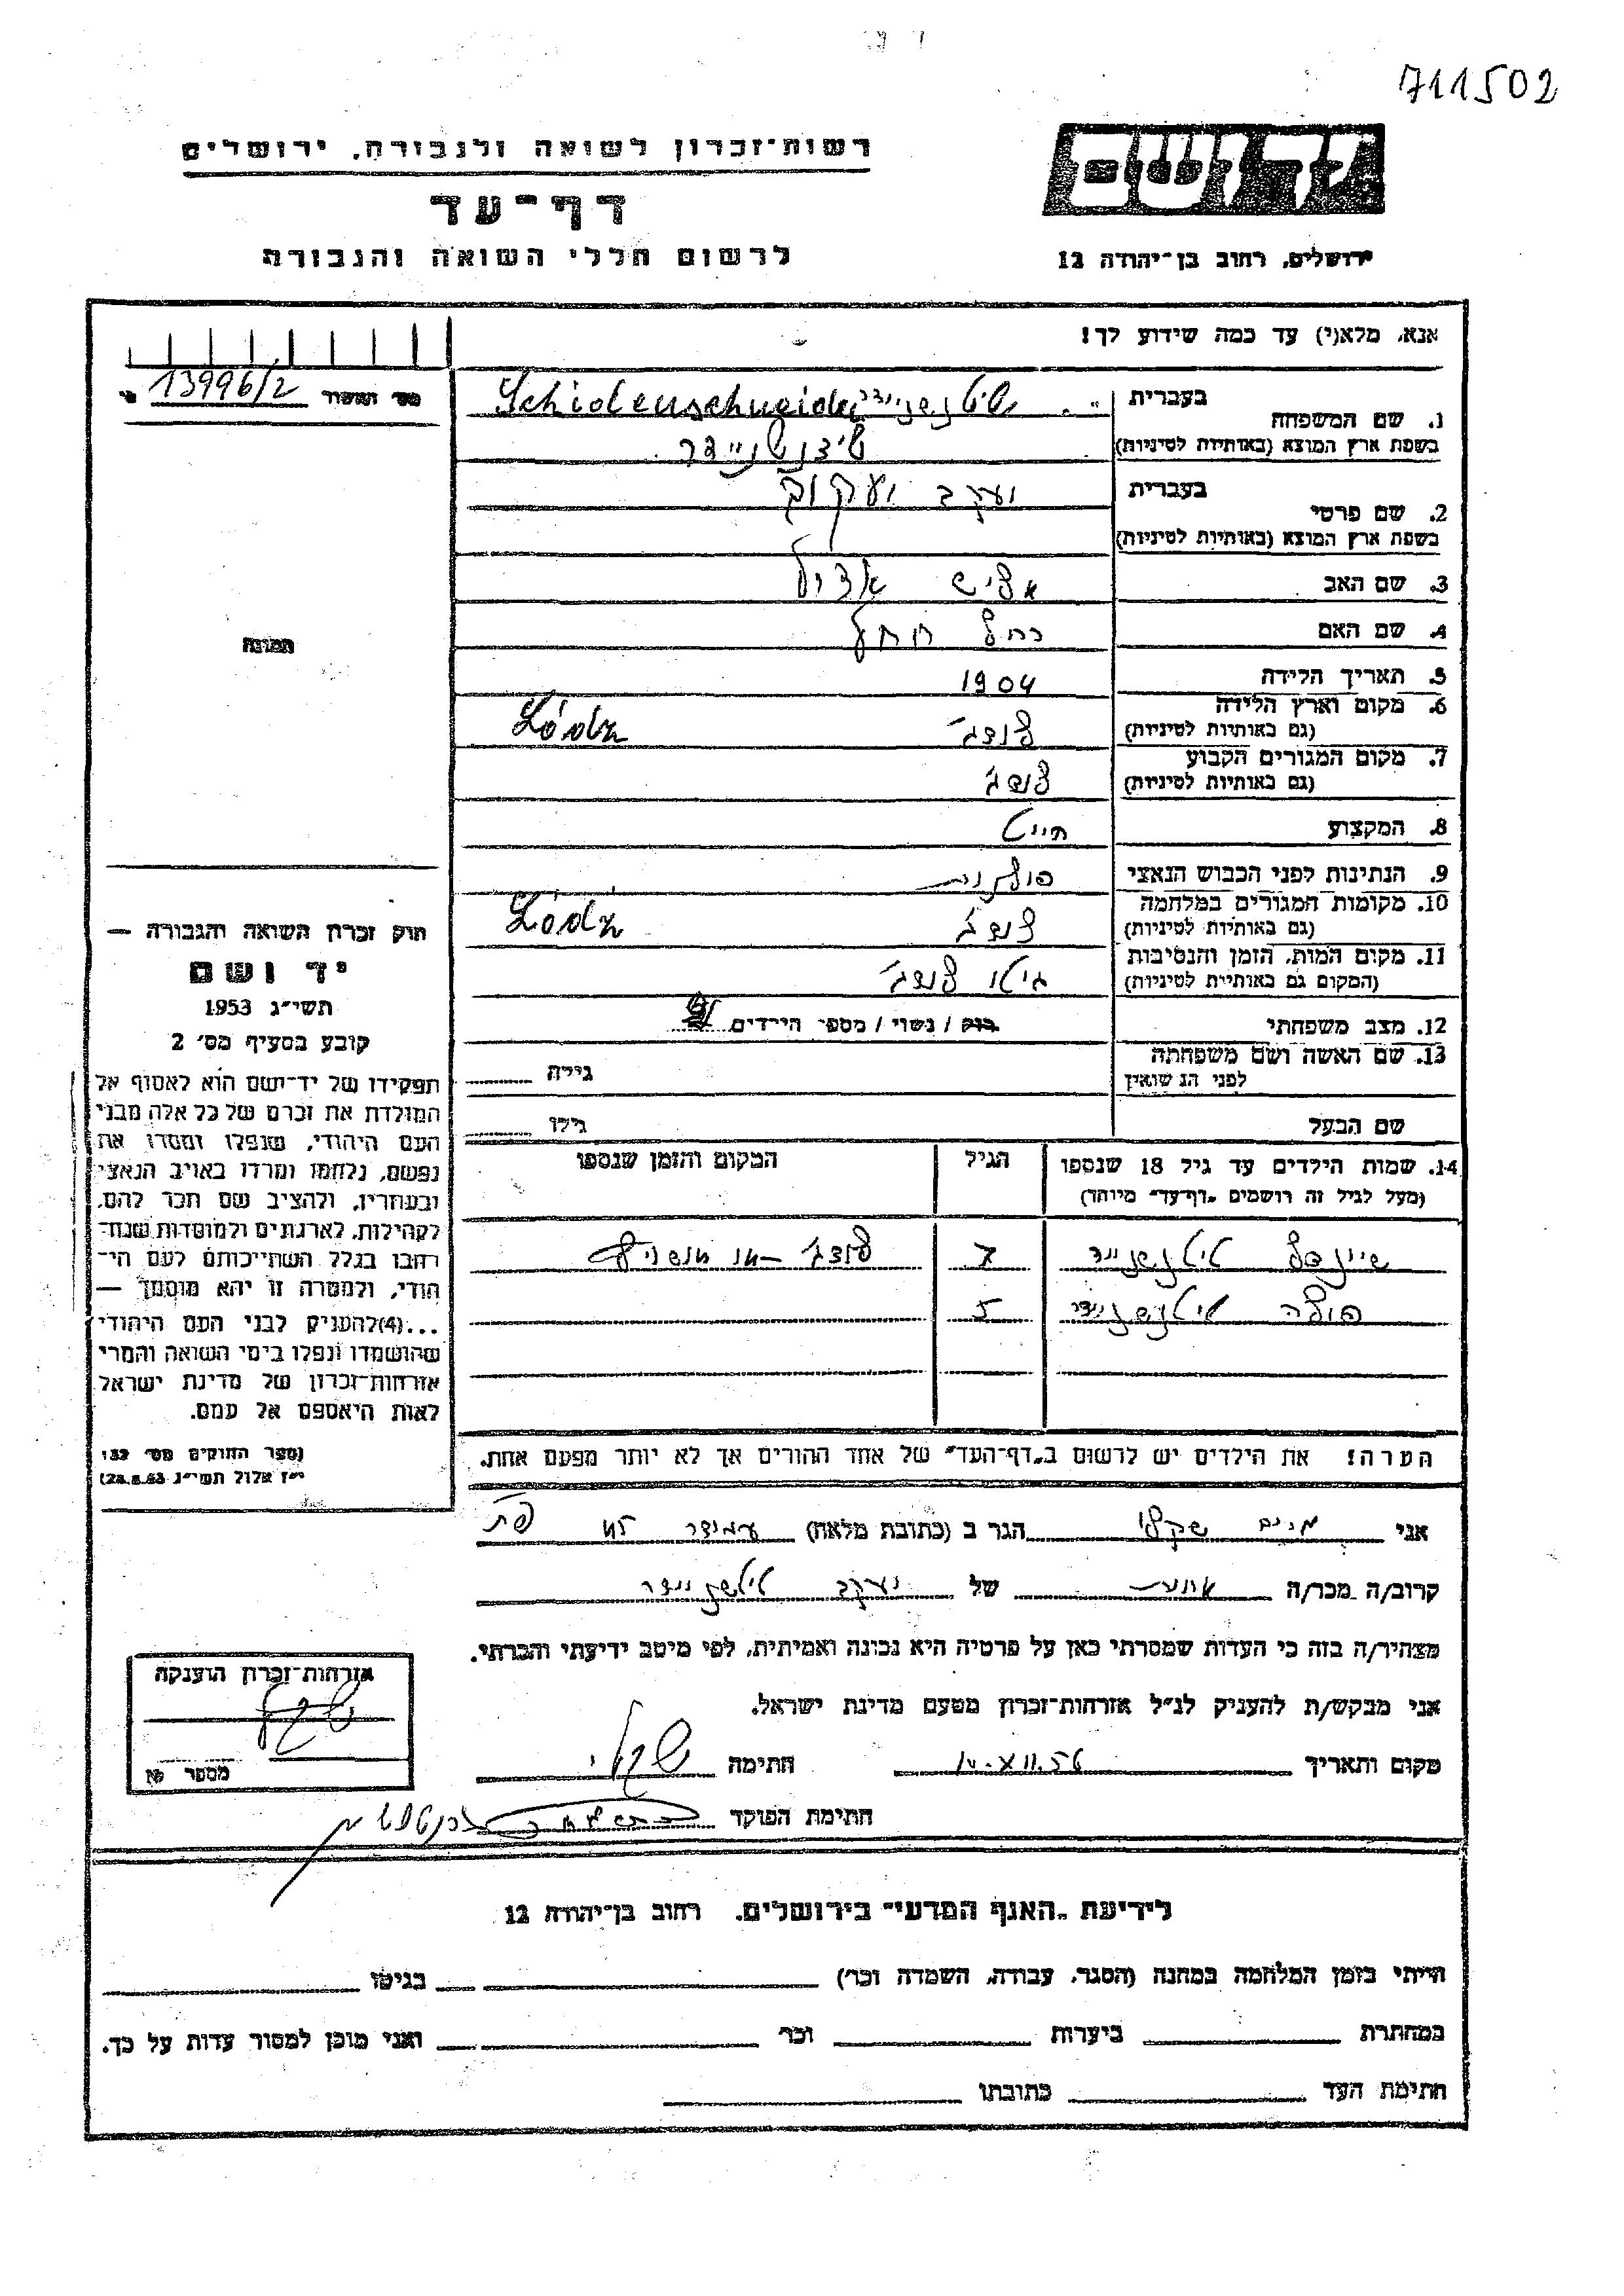 711502
רשות־זכרון לשואה ולגבורה, ירושלים
דף־עד
לרשום חללי השואה והגבורה
ידושם
ירושלים, רחוב בן־יהודה 12
אנא, מלא(י) עד כמה שידוע לך!
13996/2
1. שם המשפחה בעברית Schidenschneider
בשפת ארץ המוצא (באותיות לטיניות) שידנשניידר
2. שם פרטי בעברית יעקב יעקוב
בשפת ארץ המוצא (באותיות לטיניות)
3. שם האב
4. שם האם רחל
5. תאריך הלידה 1904
6. מקום וארץ הלידה לודג' Łódź
(גם באותיות לטיניות)
7. מקום המגורים הקבוע לודג'
(גם באותיות לטיניות)
8. המקצוע חייט
9. הנתינות לפני הכבוש הנאצי פולנית
10. מקומות המגורים במלחמה לודג' Łódź
(גם באותיות לטיניות)
11. מקום המות, הזמן והנסיבות גיטו לודג'
(המקום גם באותיות לטיניות)
12. מצב משפחתי רווק / נשוי / מספר הילדים
13. שם האשה ושם משפחתה
לפני הנשואין גילה
שם הבעל גילו
תמונה
חוק זכרון השואה והגבורה —
יד ושם
תשי״ג 1953
קובע בסעיף מס׳ 2
תפקידו של יד־ושם הוא לאסוף אל
המולדת את זכרם של כל אלה מבני
העם היהודי, שנפלו ומסרו את
נפשם, נלחמו ומרדו באויב הנאצי
ובעוזריו, ולהציב שם וזכר להם,
לקהילות, לארגונים ולמוסדות שנח־
רבו בגלל השתייכותם לעם הי־
הודי, ולמטרה זו יהא מוסמך —
...(4)להעניק לבני העם היהודי
שהושמדו ונפלו בימי השואה והמרי
אזרחות־זכרון של מדינת ישראל
לאות היאספם אל עמם.
(ספר החוקים מס׳ 132
י״ז אלול תשי״ג 28.8.53)
14. שמות הילדים עד גיל 18 שנספו הגיל המקום והזמן שנספו
(מעל לגיל זה רושמים „דף־עד״ מיוחד)
7 לודג'
פולה 5
הערה! את הילדים יש לרשום ב„דף־העד״ של אחד ההורים אך לא יותר מפעם אחת.
אני מרים שקלי הגר ב (כתובת מלאה) עמידר
קרוב/ה מכר/ה אחות של יעקב
מצהיר/ה בזה כי העדות שמסרתי כאן על פרטיה היא נכונה ואמיתית, לפי מיטב ידיעתי והכרתי.
אני מבקש/ת להעניק לנ״ל אזרחות־זכרון מטעם מדינת ישראל.
מקום ותאריך 10.XII.56 חתימה שקלי
חתימת הפוקד
אזרחות־זכרון הוענקה
מספר
לידיעת „האגף המדעי״ בירושלים, רחוב בן־יהודה 12
הייתי בזמן המלחמה במחנה (הסגר, עבודה, השמדה וכר׳) בגיטו
במחתרת ביערות וכר׳ ואני מוכן למסור עדות על כך.
חתימת העד כתובתו